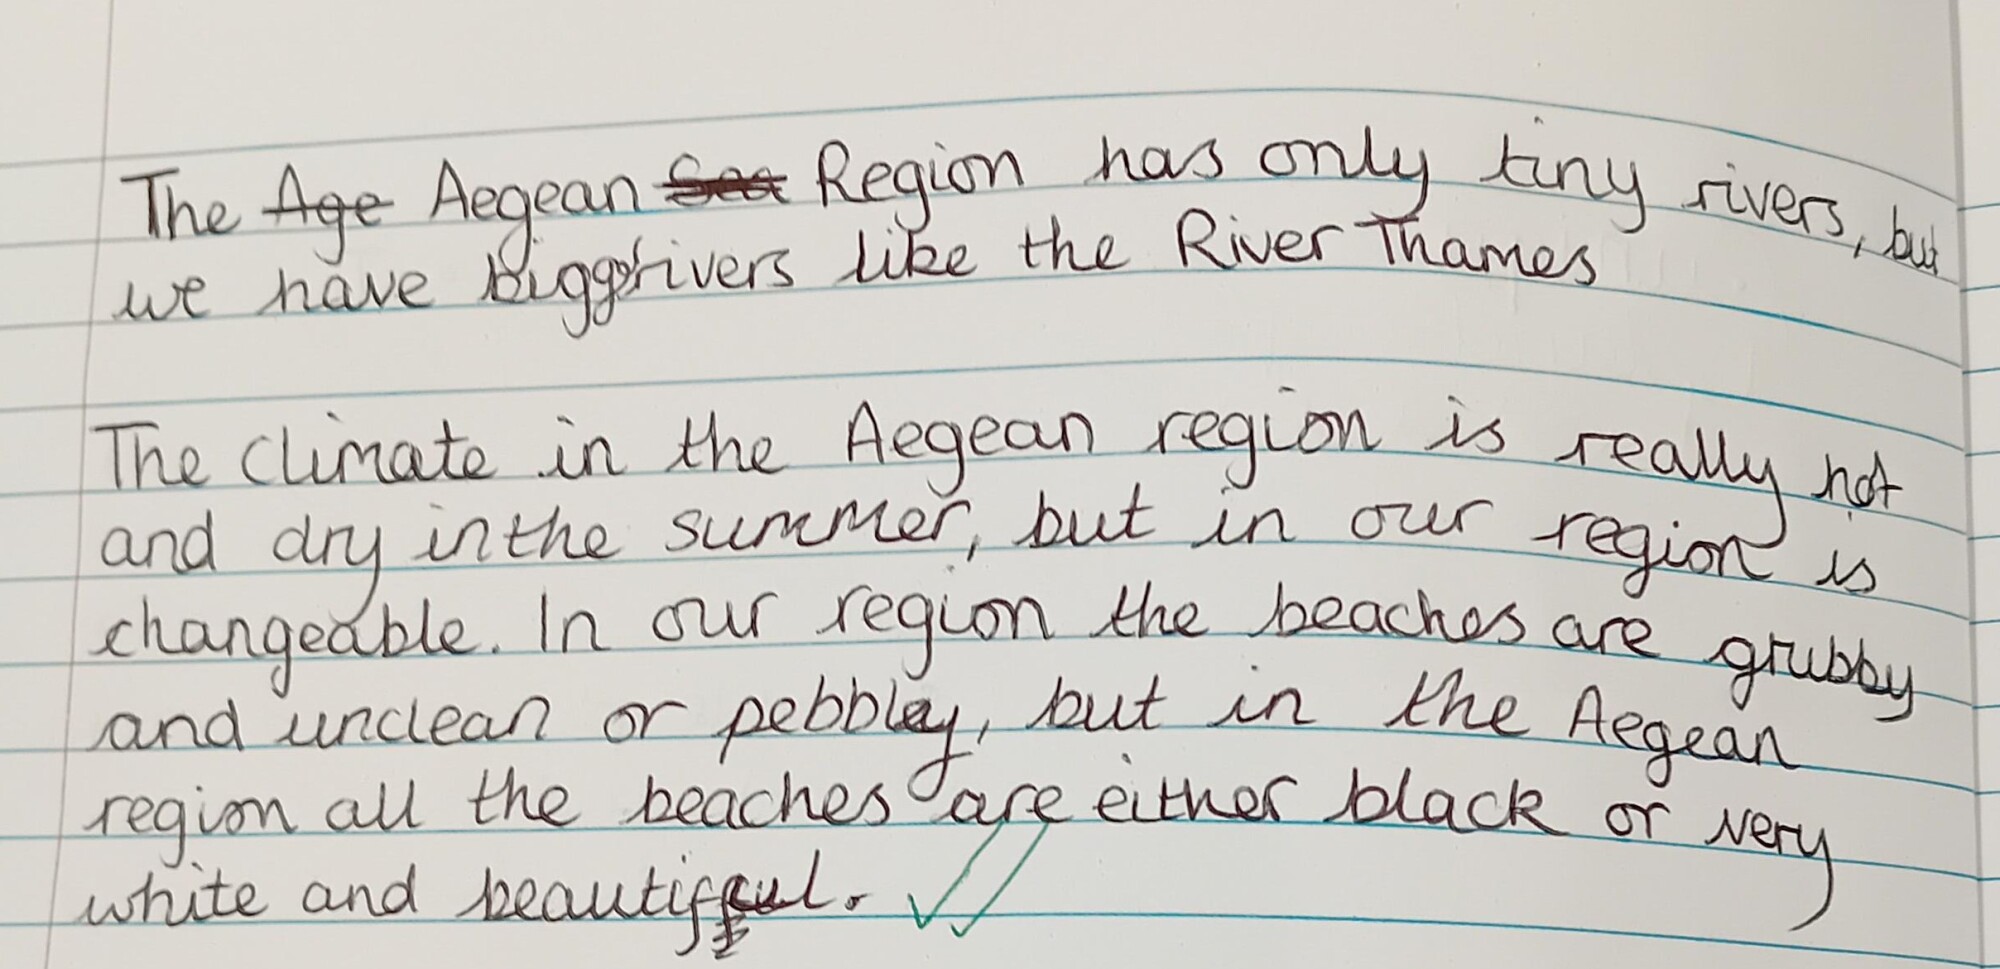 The Age Aegean Sea Region has only tiny rivers, but
we have bigger rivers like the River Thames
The climate in the Aegean region is really hot
and dry in the summer, but in our region is
changeable. In our region the beaches are grubby
and unclean or pebbley, but in the Aegean
region all the beaches are either black or very
white and beautiful.